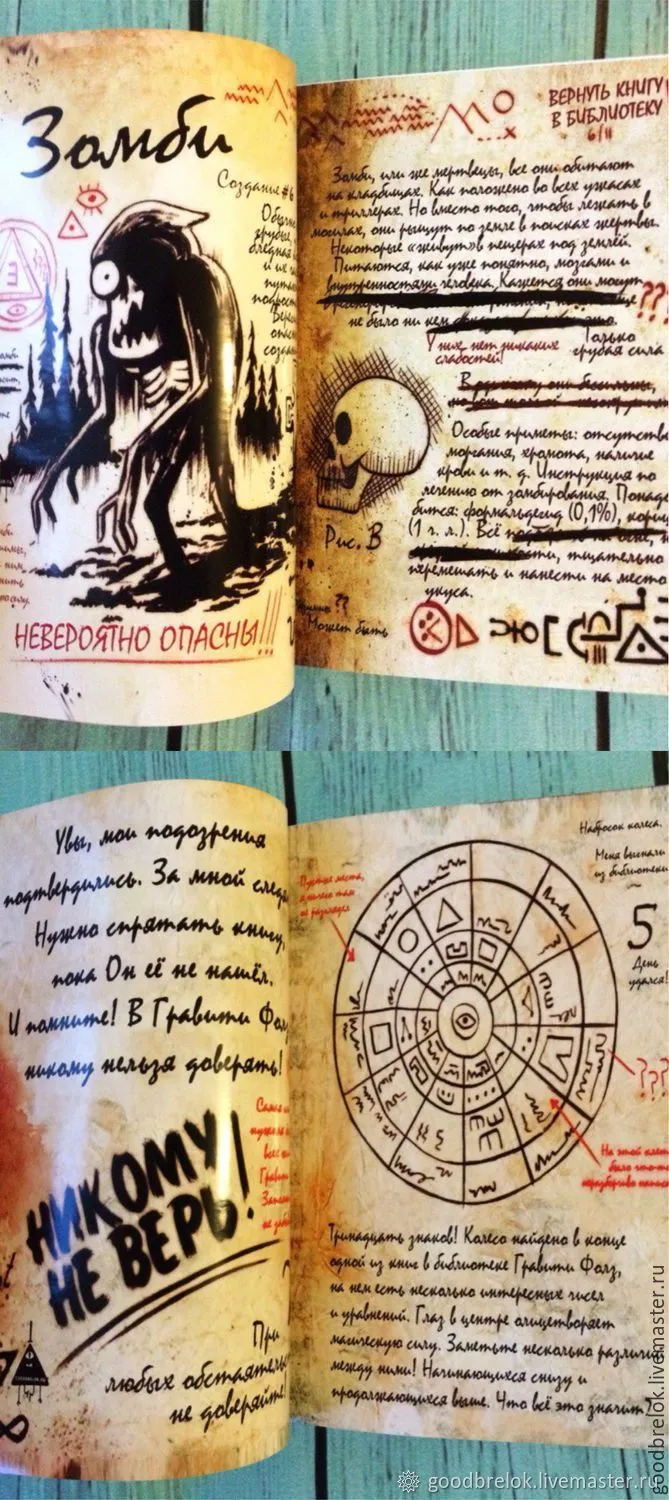 Зомби
Создание #6
НЕВЕРОЯТНО ОПАСНЫ!!!
ВЕРНУТЬ КНИГУ
В БИБЛИОТЕКУ
6/11
Зомби, или же мертвецы, все они обитают
на кладбищах. Как положено во всех ужасах
и триллерах. Но вместо того, чтобы лежать в
могилах, они рыщут по земле в поисках жертвы.
Некоторые «живут» в пещерах под землёй.
Питаются, как уже понятно, мозгами и
внутренностями человека. Кажется они могут
???
не было ни кем
У них нет никаких
слабостей!
Только
грубая сила
Особые приметы: отсутстви
моргания, хромота, наличие
крови и т. д. Инструкция по
лечению от зомбирования. Понадо
бится: формальдегид (0,1%), кориц
(1 ч. л.). Всё
тщательно
перемешать и нанести на место
укуса.
Рис. В
??
Может быть
Увы, мои подозрения
подтвердились. За мной следя
Нужно спрятать книгу,
пока Он её не нашёл.
И помните! В Гравити Фолз
никому нельзя доверять!
НИКОМУ
НЕ ВЕРЬ!
При
любых обстоятельс
не доверяйте!
Набросок колеса.
Меня выгнали
из библиотеки
5
День
удался!
Пустые места,
???
На этой клет
было что-то
неразборчиво написа
Тринадцать знаков! Колесо найдено в конце
одной из книг в библиотеке Гравити Фолз,
на нем есть несколько интересных чисел
и уравнений. Глаз в центре олицетворяет
магическую силу. Заметьте несколько различи
между ними! Начинающихся снизу и
продолжающихся выше. Что всё это значит?
goodbrelok.livemaster.ru
goodbrelok.livemaster.ru